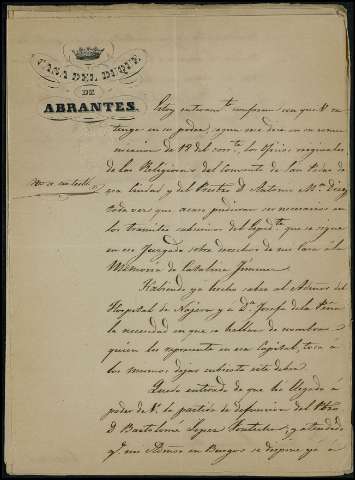 CASA DEL DUQUE
DE
ABRANTES.
Estoy enteramte conforme con que V. re
tenga en su poder, segun me dice en su comu
nicacion de 12 del corrte los oficios originales
de las Religiosas del Convento de San
esa Ciudad y del Presbo D. Antonio Ma Diez
toda vez que acaso pudieran ser necesarios en
los tramites subsivos del Espedte que se sigue
en ese Juzgado sobre derechos de esa Casa á la
Memoria de Catalina Jimenez
Habiendo ya hecho saber al Admor del
Hospital de Najera y a Da Josefa de la Peña
la necesidad en que se hallan de nombrar
quien les represente en esa Capital, toca á
los mismos dejar cubierto este deber.
Quedo enterado de que ha llegado á
poder de V. la partida de defuncion del Pbro
D. Bartolomé Lopez y atendido
qe mi Admor en Burgos se dispone ya á